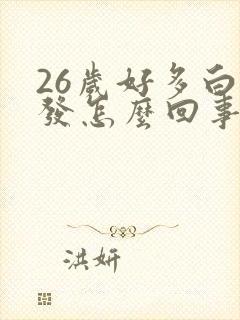 26歲好多白
發怎麼回事
洪妍